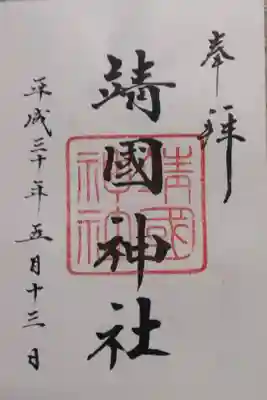 奉拝
靖國神社
平成三十年五月十三日
靖國神社